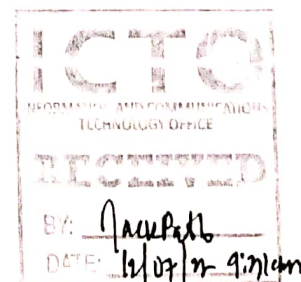 ICTO
INFORMATION AND COMMUNICATIONS
TECHNOLOGY OFFICE
RECEIVED
BY:
DATE: 12/07/